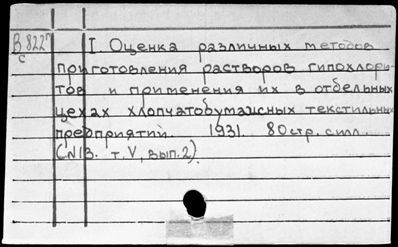 В 8227 I. Оценка различных методов
с
приготовления растворов гипохлори-
тов и применения их в отдельных
цехах хлопчатобумажных текстильных
предприятий. 1931. 80стр. с илл.
(№13. т. V, вып. 2).